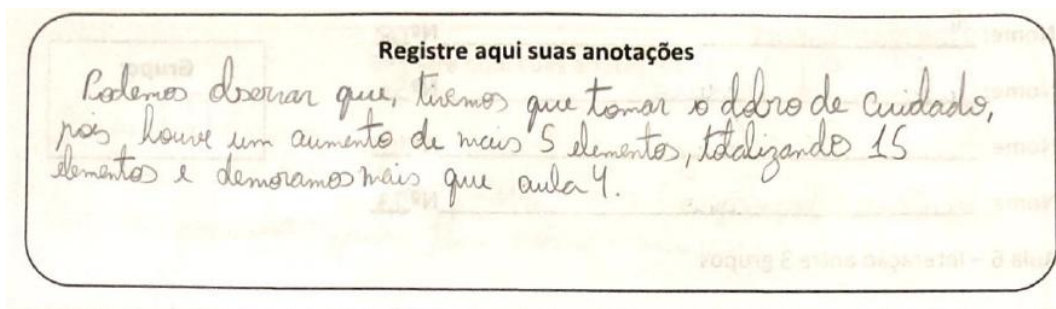 Registre aqui suas anotações
Podemos observar que, tivemos que tomar o dobro de cuidado,
pois houve um aumento de mais 5 elementos, totalizando 15
elementos e demoramos mais que aula 4.